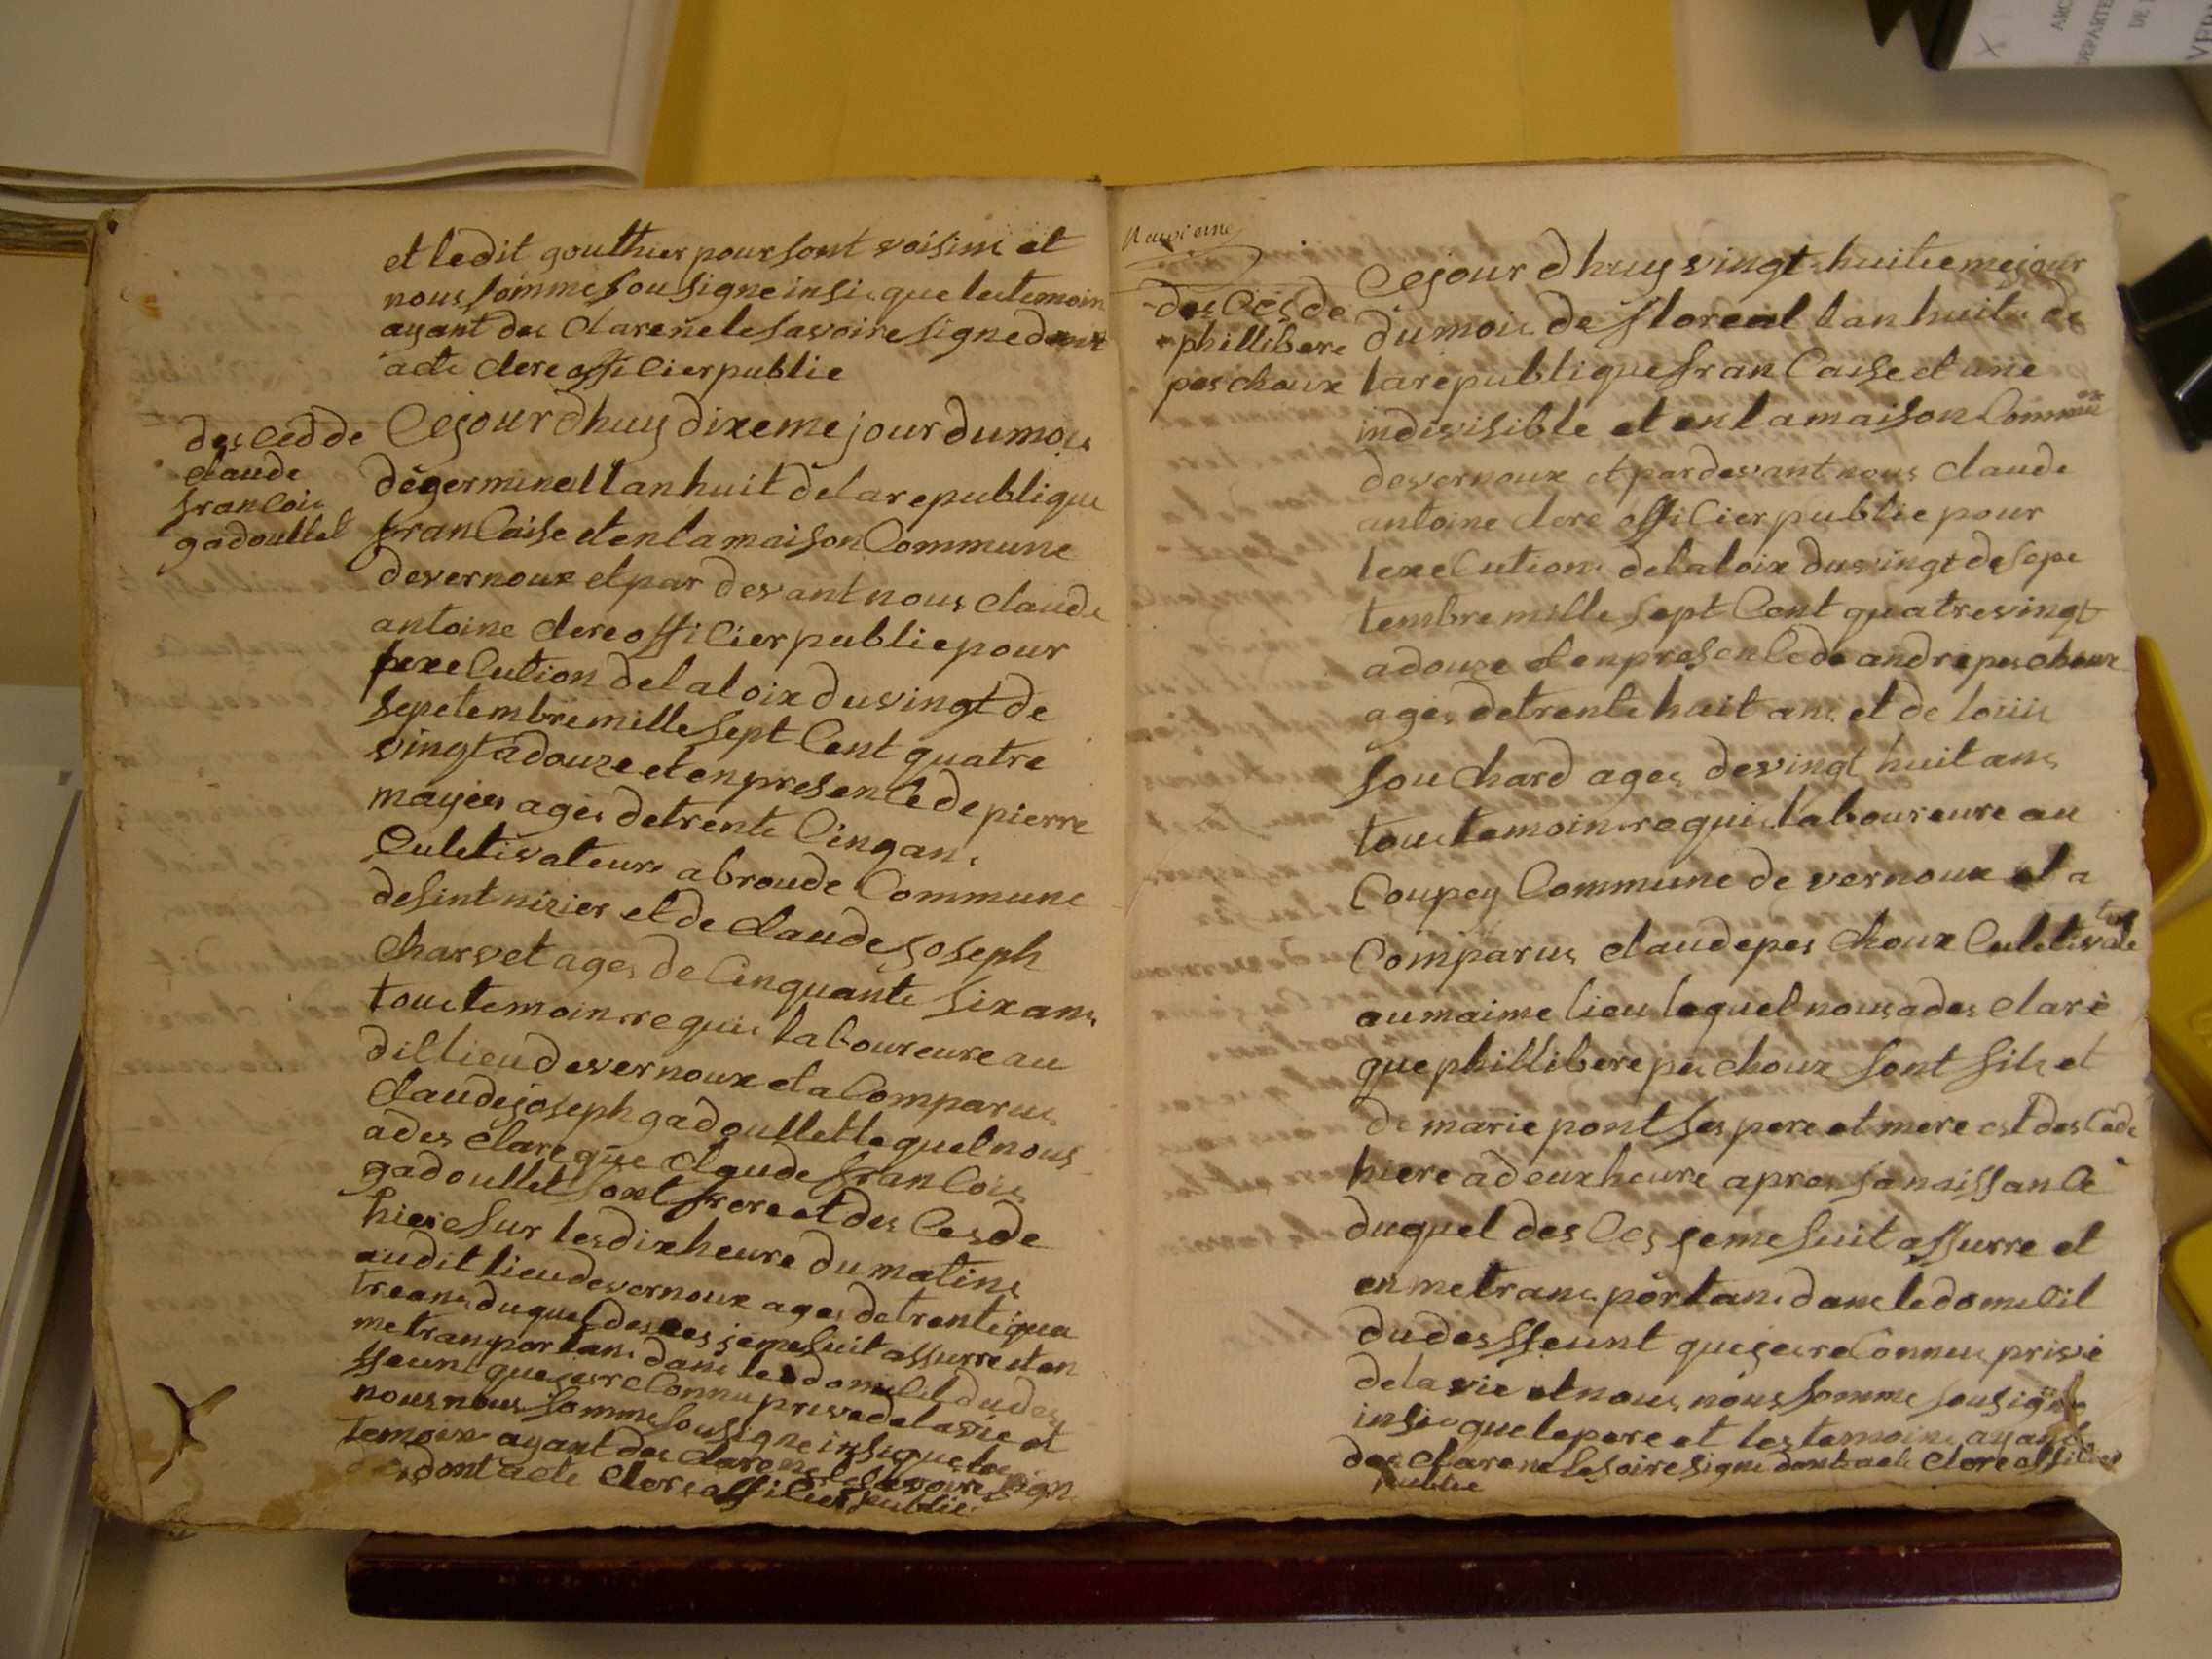 et ledit gouthier pour sont voisine et
nous somme sousigne insi que letemoin
ayant des clare ne le savoire signe dont
acte clere officier publie
des ced de
claude
francois
gadoullet
Cejourdhuy dixeme jour du mois
de germinal lan huit de la republique
francaise et en la maison Commune
de vernoux et par devant nous claude
antoine clere officier publie pour
lexecution de la loix du vingt de
sepetembre mille sept Cent quatre
vingt a douze et en presence de pierre
mayer ages de trente Cinq ans
Culetivateure a broude Commune
de sint nizier et de claude joseph
charvet ages de Cinquante six ans
tous temoin requis laboureure au
dit lieu de vernoux et a Comparus
claude joseph gadoullet le quel nous
a des clare que claude francois
gadoullet sont frere et des Cesde
hiere sur les dix heure du matins
audit lieu de vernoux ages de trente qua
tre ans duquel desces je me suit assurre et en
me transportans dans le domicil du des
sseunt que je ressconnu prive de la vie et
nous nous somme sousigne insi que les
temoin ayant des clare ne le savoire sign
dont acte clere officier publie
des Ces de
phillibere
peschoux
Cejour dhuy vingt huitieme jour
du mois de floreal lan huit de
la republique francaise et une
indivisible et en la maison Commune
de vernoux et par devant nous claude
antoine clere officier publie pour
lexecution de la loix du vingt de sepe
tembre mille sept Cent quatre vingt
a douze et en presence de andre peschoux
ages de trente huit ans et de louis
souchard ages de vingt huit ans
tous temoin requis laboureure au
Coupey Commune de vernoux et a
Comparus claude peschoux Culetivateure
au maime lieu lequel nous a des clare
que phillibere peschoux sont fils et
de marie pont ses pere et mere est des cede
hiere a deux heure apres sa naissance
duquel des Ces je me suit assurre et
en me transportans dans le domicil
du dessseunt que je reconnus prive
de la vie et nous nous somme sousigne
insi que le pere et les temoins ayant
des clare ne le saire signe dont acte clere officier
publie